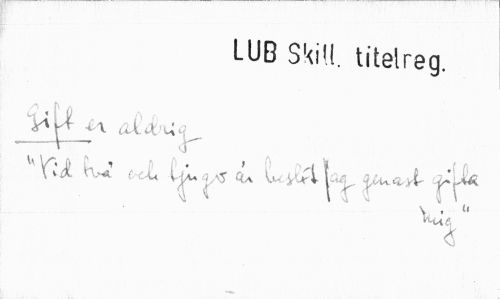 LUB Skill. titelreg.
Gift er aldrig
"Vid två och tjugo år beslöt jag genast gifta
mig"